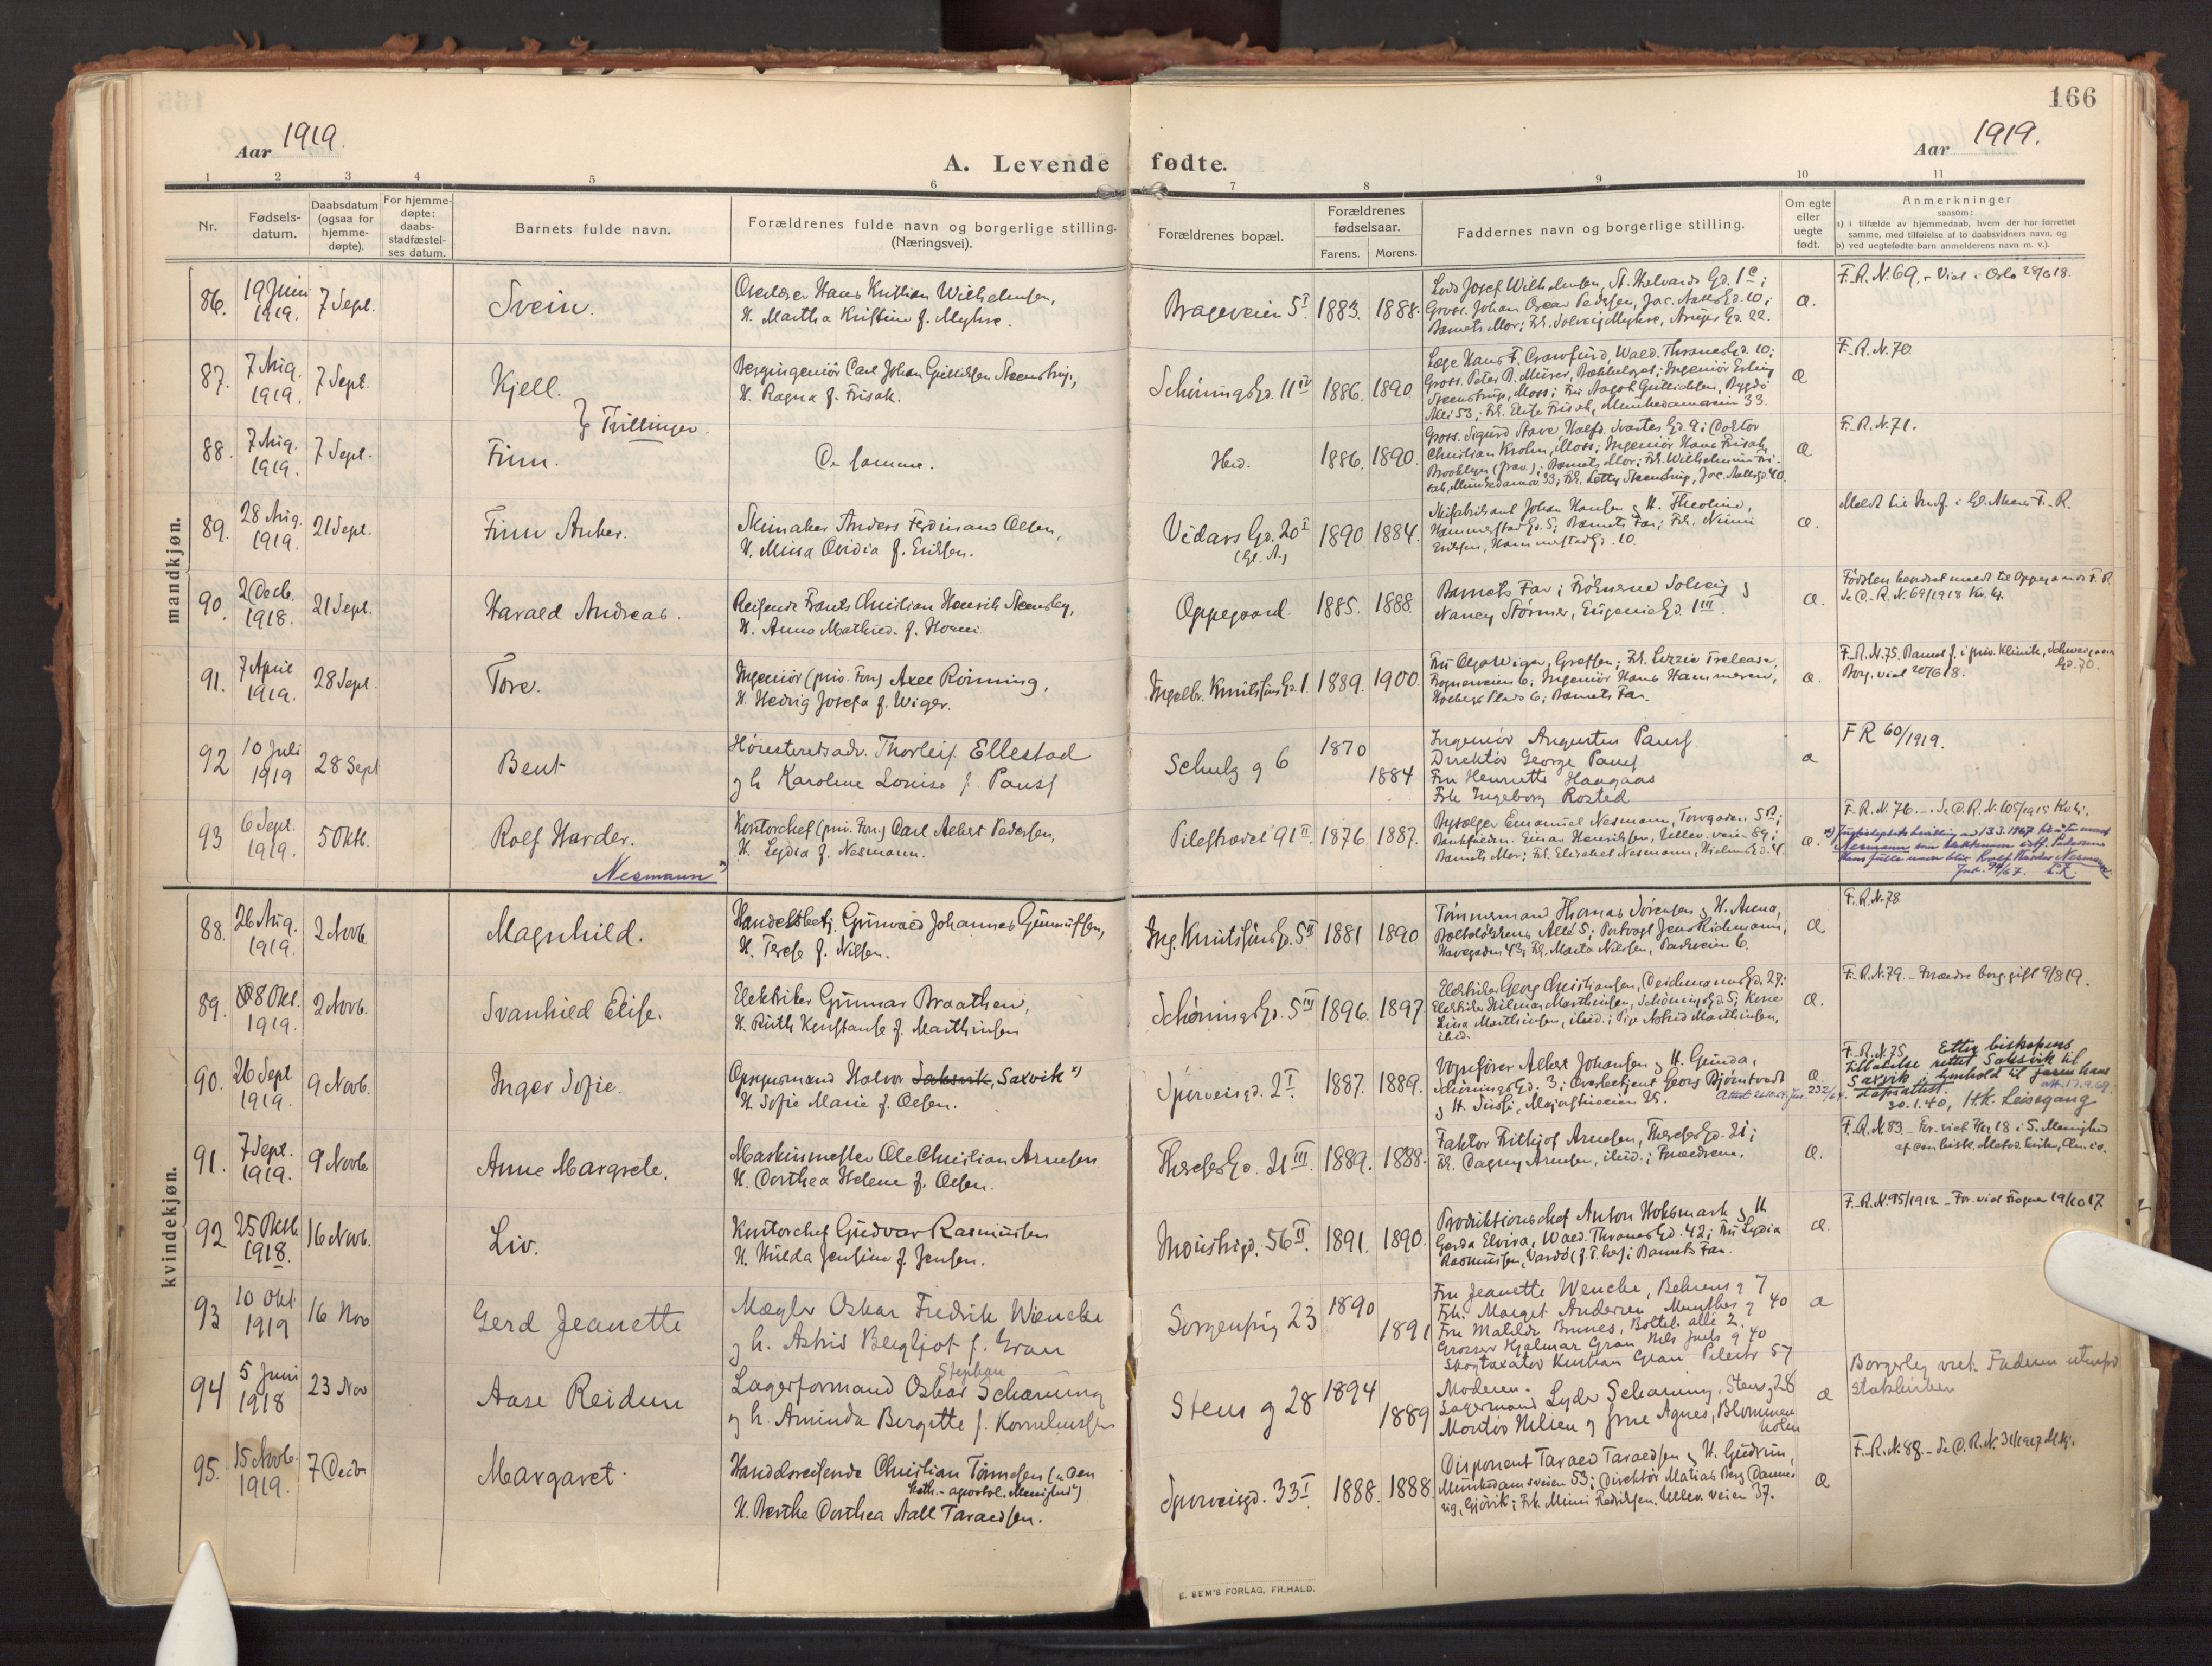 166
Aar 1919.
A. Levende fødte.
Aar 1919.
1 2 3 4 5 6 7 8 9 10 11
Nr.
Fødsels-
datum.
Daabsdatum
(ogsaa for
hjemme-
døpte).
For hjemme-
døpte:
daabs-
stadfæstel-
ses datum.
Barnets fulde navn.
Forældrenes fulde navn og borgerlige stilling.
(Næringsvei).
Forældrenes bopæl.
Forældrenes
fødselsaar.
Farens. Morens.
Faddernes navn og borgerlige stilling.
Om egte
eller
uegte
født.
Anmerkninger
saasom:
a) i tilfælde av hjemmedaab, hvem der har forrettet
samme, med tilføielse af to daabsvidners navn, og
b) ved uegtefødte barn anmelderens navn m. v.).
mandkjøn.
86. 19 Juni 1919. 7 Sept. Svein.
Hans Kristian Wilhelmsen,
H. Martha Kristine f. Myhre.
Brageveien 5 I 1883. 1888.
Lods Josef Wilhelmsen, St. Halvards Gd. 1 c;
Gross. Johan Oscar Pedersen, Jac. Aalls Gd. 10;
Barnets Mor; Frk. Solveig Myhre, Gd. 22.
Æ.
F.R.N. 69. - Viet i Oslo 28/6 18.
87. 7 Aug. 1919. 7 Sept. Kjell.
Bergingeniør Carl Johan Gullichsen Steenstrup,
H. Ragna f. Frisak.
Schønings Gd. 11 IV 1886. 1890
Læge Hans F. Crawfurd, Wald. Thranes Gd. 10;
Gross. Peter B. Ingeniør Erling
Steenstrup, Moss; Fru Gullichsen, Bygdø
Allé 53; Frk. Elise Frisak, Munkedamsveien 33.
Æ
F.R.N. 70
} Tvillinger.
88. 7 Aug. 1919. 7 Sept. Finn.
De samme.
Ibid. 1886. 1890.
Gross. Sigurd Halfd. Svartes Gd. 9; Doktor
Christian Krohn, Moss; Ingeniør Hans Frisak,
Brooklyn (frav.); Barnets Mor; Frk. Wilhelmine Fri-
sak, Munkedamsv. 33; Frk. Letty Steenstrup, Jac. Aalls gd. 40.
Æ
F.R.N. 71.
89. 28 Aug. 1919. 21 Sept. Finn Anker.
Skimaker Anders Ferdinand Olsen,
H. Mina Ovidia f. Eriksen.
Vidars Gd. 20 I
(Gl. A.)
1890 1884.
Skifabrikant Johan Hansen & H. Theoline,
Hammerstad Gd. 5; Barnets Far; Frk.
Eriksen, Hammerstad Gd. 10.
Æ.
Meldt til Gl. Akers F.R.
90. 2 Decb. 1918. 21 Sept. Harald Andreas.
Reisende Frants Christian Henrik Steensby,
H. Anna Mathild. f.
Oppegaard. 1885. 1888.
Barnets Far; Frøknerne Solveig &
Nancy Størmer, Eugenies Gd. 1 III.
Æ.
Fødslen meldt til Oppegaards F.R.
Se D.R.N. 69/1918 Kv. kj.
91. 7 April 1919. 28 Sept. Tore.
Ingeniør (priv. Forr.) Axel Rönning,
H. Hedvig Josefa f. Wiger.
Ingelbr. Knutssøns Gd. 1 1889. 1900.
Fru Olga Wiger, Grefsen; Frk. Lizzie
Frognerveien 6; Ingeniør Hans Hammeren,
Holbergs Plads 6; Barnets Far.
Æ.
F.R.N. 75. Barnet f. i priv. Klinik, Schweigaards
Gd. 70.
Borg. viet 20/6 18.
92 10 Juli 1919 28 Sept Bent
Høiesteretsadv. Thorleif Ellestad
og h Karoline Louise f. Pauss
Schulz g 6 1870 1884
Ingeniør Augustin Pauss
Direktør George Pauss
Fru Henriette Haagaas
Frk Ingeborg Rosted
æ
FR 60/1919.
93 6 Sept. 1919. 5 Okt. Rolf Harder.
Nesmann x)
Kontorchef (priv. Forr.) Carl Albert Pedersen,
H. Lydia f. Nesmann.
Pilestrædet 91 II 1876. 1887.
Bysælger Emanuel Nesmann, Torvgaden 5 B;
Einar Henriksen, Ullev. veien 89;
Barnets Mor; Frk. Elisabet Nesmann, Hjelms Gd. 4.
Æ.
F.R.N. 76. - Se D.R.N. 105/1915 Kv. kj.
Nesmann som slektsnavn
Hans fulle navn blir Rolf Harder Nesmann
kvindekjøn.
88. 26 Aug. 1919. 2 Novb. Magnhild.
Handelsbetj. Gunvald Johannes Gunnulfsen,
H. Terese f. Nilsen.
Ing. Knutssøns Gd. 5 II 1881 1890
Tømmermand Thomas Sørensen & H. Anna,
Botoløkkens Allé 5; Jens Richmann,
Havegaden 43; Frk. Marta Nilsen, Parkveien 6.
Æ
F.R.N. 78
89. 8 Okt. 1919. 2 Novb. Svanhild Elise.
Elektriker Gunnar Braathen,
H. Ruth Konstanse f. Marthinsen
Schønings Gd. 5 III 1896. 1897
Elektriker Georg Christiansen, Deichmans Gd. 27;
Elektriker Hilmar Marthinsen, Schønings Gd. 5; Kone
Lina Marthinsen, ibid.; Pige Astrid Marthinsen,
ibid.
Æ.
F.R.N. 79. - Forældre borg. gift 9/8 19.
90. 26 Sept 1919. 9 Novb. Inger Sofie.
Opsynsmand Halvor Saksvik, Saxvik x)
H. Sofie Marie f. Olsen.
Sporveisgd. 2 I 1887. 1889.
Vognfører Albert Johansen & H. Gunda,
Schønings Gd. 3; Overbetjent Georg Bjørntvedt
& H. Majorstuveien 25.
Æ.
F.R.N. 75 Etter biskopens
tillatelse rettet Saksvik til
Saxvik i henhold til hans
dåpsattest.
30.1.40, H.K. Leisegang
91. 7 Sept. 1919. 9 Novb. Anne Margrete.
Maskinmester Ole Christian Arnesen
H. Dorthea Helene f. Olsen.
Theresesgd. 21 III. 1889. 1888.
Faktor Frithjof Arnesen, Thereses Gd. 21;
Frk. Dagny Arnesen, ibid.; Forældrene.
Æ.
F.R.N. 83 - For. viet 18 i S. Menighed
92 25 Oktb. 1918. 16 Novb. Liv.
Kontorchef Gudvar Rasmussen
H. Hulda Jensine f. Jensen.
Industrigd. 56 II. 1891. 1890.
Produktionschef Anton Hoksmark & H
Gerda Elvira, Wald. Thranes Gd. 42; Fru Lydia
Rasmussen, Vardö; Barnets Far.
Æ.
F.R.N. 95/1918 - For. viet Frogner 19/10 17
93 10 Okt 1919 16 Nov Gerd Jeanette
Mægler Oskar Fredrik Wencke
og h. Astrid Bergljot f. Gran
Sorgenfrig 23 1890 1891
Fru Jeanette Wencke, Behrens g 7
Frk. Marget Andersen Munthes g 40
Fru Matilde Brunes, Boltel. allé 2.
Grosser Hjalmar Gran Nils Juels g 40
Skogtaxator Kristian Gran Pilestr 57
æ
94 5 Juni 1918 23 Nov Aase Reidun
Stephan
Lagerformand Oskar Scharning
og h. Aminda Bergitte f. Kornelius​sen
Stens g 28 1894 1889
Moderen.
Lagermand Lyder Scharning, Stensg 28
Nilsen og frue Agnes, Blommen
holm
æ
Borgerlig viet. Faderen utmeldt
Statskirken
95. 15 Novb. 1919. 7 Decbr Margaret.
Handelsreisende Christian Tønnesen (Den
kath.-apostol. Menighed)
H. Berthe Dorthea Aall Taraldsen.
Sporveisgd. 33 I 1888. 1888
Disponent Tarald Taraldsen & H. Gudrun,
Munkedamsveien 53; Direktør Matias Berg
Gjövik; Frk. Mimi Fredriksen, Ullev. veien 37.
Æ
F.R.N. 88. - Se D.R.N. 31/1917 M.kj.
E. SEM'S FORLAG, FR.HALD.